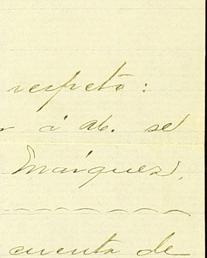 respeto:
á Ab. se
Márquez,
cuenta de